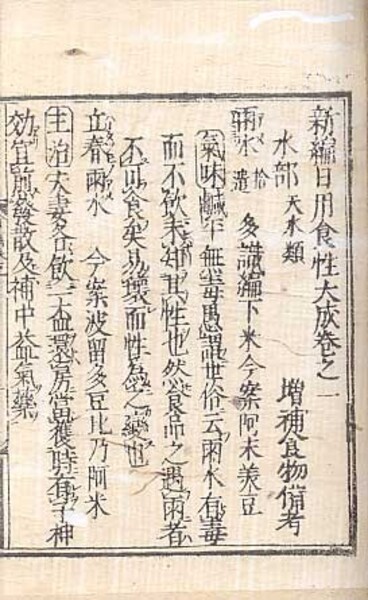 新編日用食性大成卷之一
増補食物備考
水部 天水類
雨水 拾遺 多識編下米今案阿末美豆
氣味鹹平無毒愚謂世俗云雨水有毒
而不飲未知其性也然食品之遇雨者
不可食矣易壞而性爲之變也
立春雨水 今案波留多豆比乃阿米
主治夫妻各飲一盃還房當獲時有子神
効宜煎發散及補中益氣藥